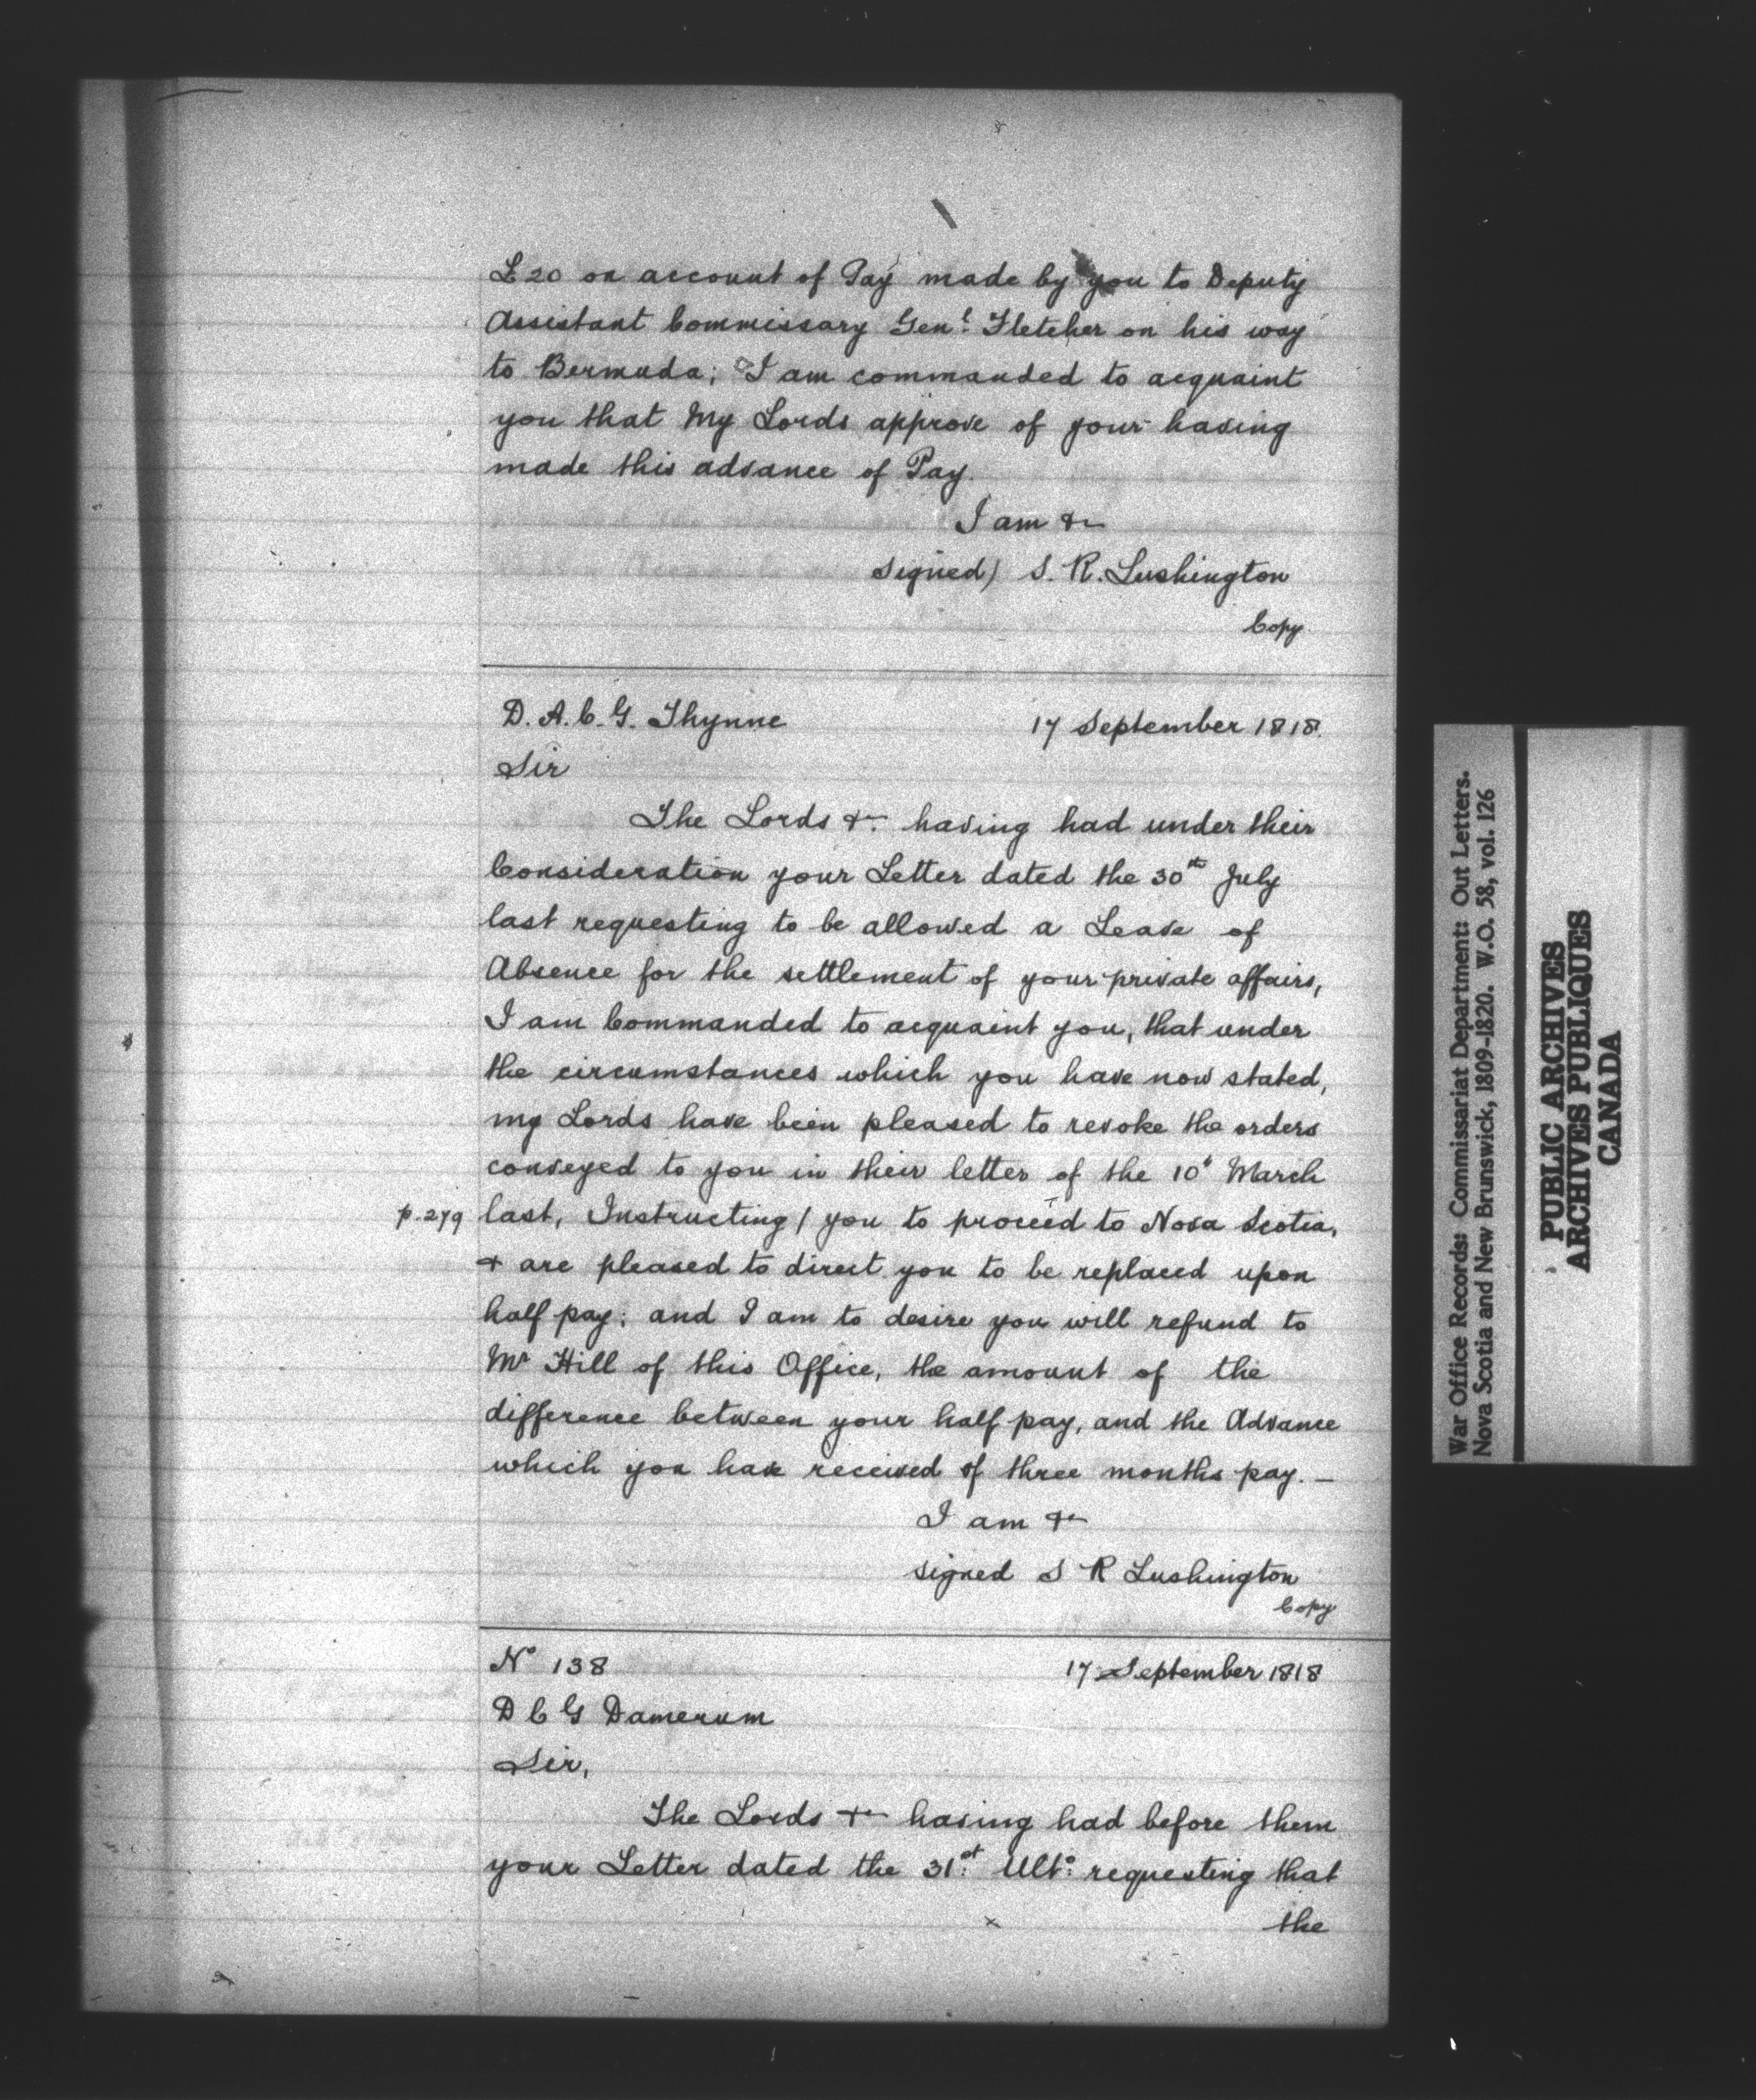 £20 on account of Pay made by you to Deputy
Assistant Commissary Genl. Fletcher on his way
to Bermuda; I am commanded to acquaint
you that My Lords approve of your having
made this advance of Pay.
I am &c
signed) S. R. Lushington
Copy.
D. A. C. G. Thynne 17 September 1818.
Sir
The Lords &c. having had under their
Consideration your Letter dated the 30th July
last requesting to be allowed a Leave of
Absence for the settlement of your private affairs,
I am Commanded to acquaint you, that under
the circumstances which you have now stated,
my Lords have been pleased to revoke the orders
conveyed to you in their letter of the 10t March
p.279 last, Instructing / you to proceed to Nova Scotia,
+ are pleased to direct you to be replaced upon
half pay; and I am to desire you will refund to
Mr Hill of this Office, the amount of the
difference between your half pay, and the Advance
which you have received of three months pay. —
I am &c
signed S R Lushington
Copy
No 138 17 September 1818
D C G Damerum
Sir,
The Lords &c having had before them
your Letter dated the 31.st Ulto: requesting that
the
War Office Records: Commissariat Department: Out Letters.
Nova Scotia and New Brunswick, 1809-1820. W.O. 58, vol. 126
PUBLIC ARCHIVES
ARCHIVES PUBLIQUES
CANADA